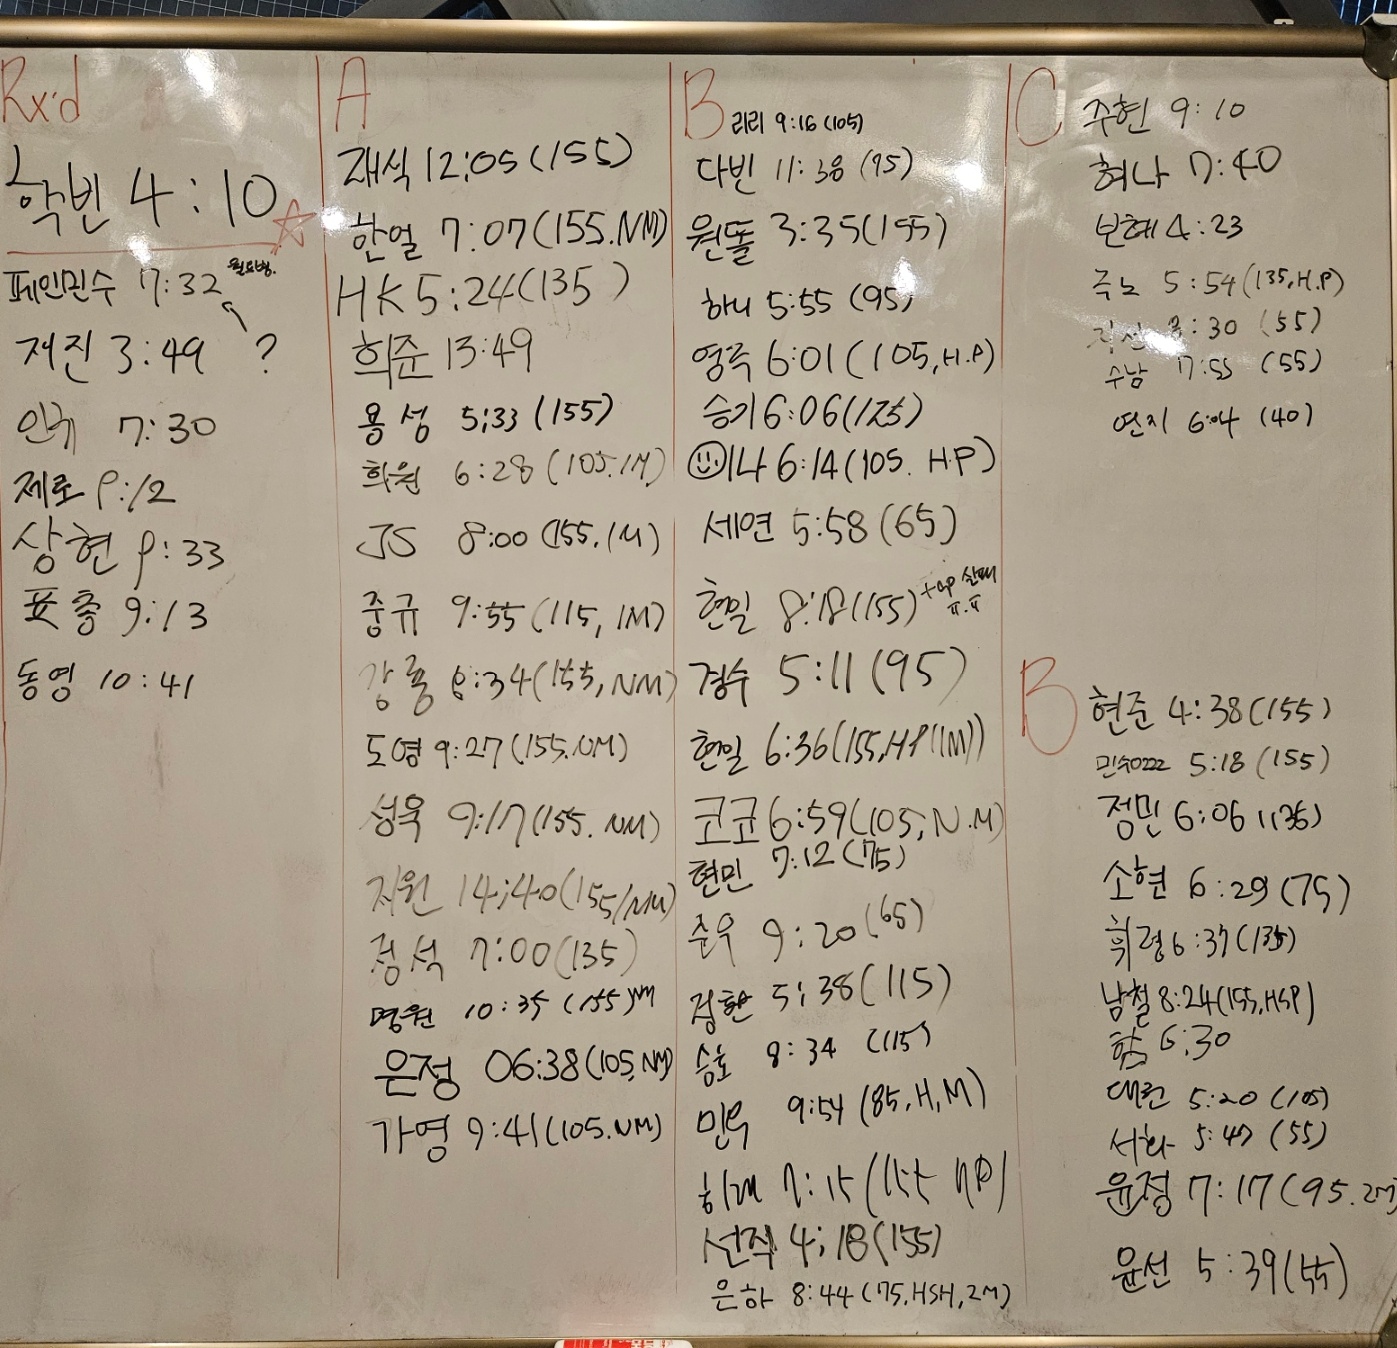 Rx'd
학빈 4:10
페인민수 7:32 월요병.
재진 3:49 ?
인규 7:30
제로 9:12
상현 9:33
표총 9:13
동영 10:41
A
재식 12:05 (155)
한얼 7:07 (155.NM)
HK 5:24 (135)
희준 13:49
용성 5:33 (155)
희원 6:28 (105.1M)
JS 8:00 (155.1M)
중규 9:55 (115, 1M)
6:34 (155, NM)
도영 9:27 (155.NM)
성욱 9:17 (155.NM)
지원 14:40 (155/NM)
정석 7:00 (135)
명원 10:35 (155) NM
은정 06:38 (105, NM)
가영 9:41 (105.NM)
B
리리 9:16 (105)
다빈 11:38 (95)
원똘 3:35 (155)
하니 5:55 (95)
영주 6:01 (105, H.P)
승기 6:06 (125)
이나 6:14 (105. H.P)
세연 5:58 (65)
현일 8:18 (155) ㅠ.ㅠ
경수 5:11 (95)
현일 6:36 (155, HP (1M))
코코 6:59 (105, N.M)
현민 7:12 (75)
준우 9:20 (65)
정환 5:38 (115)
승호 8:34 (115)
민우 9:54 (85, H, M)
7:15 (155
선직 4:18 (155)
은하 8:44 (75, HSH, 2M)
C
주현 9:10
허나 7:40
보혜 4:23
주노 5:54 (135, H.P)
:30 (55)
수남 7:55 (55)
연지 6:04 (40)
B
현준 4:38 (155)
민수0222 5:18 (155)
정민 6:06
소현 6:29 (75)
휘령 6:37 (135)
남철 8:24 (155, HSP)
함 6:30
5:20 (105)
서화 5:47 (55)
윤정 7:17 (95.2M)
윤선 5:39 (55)